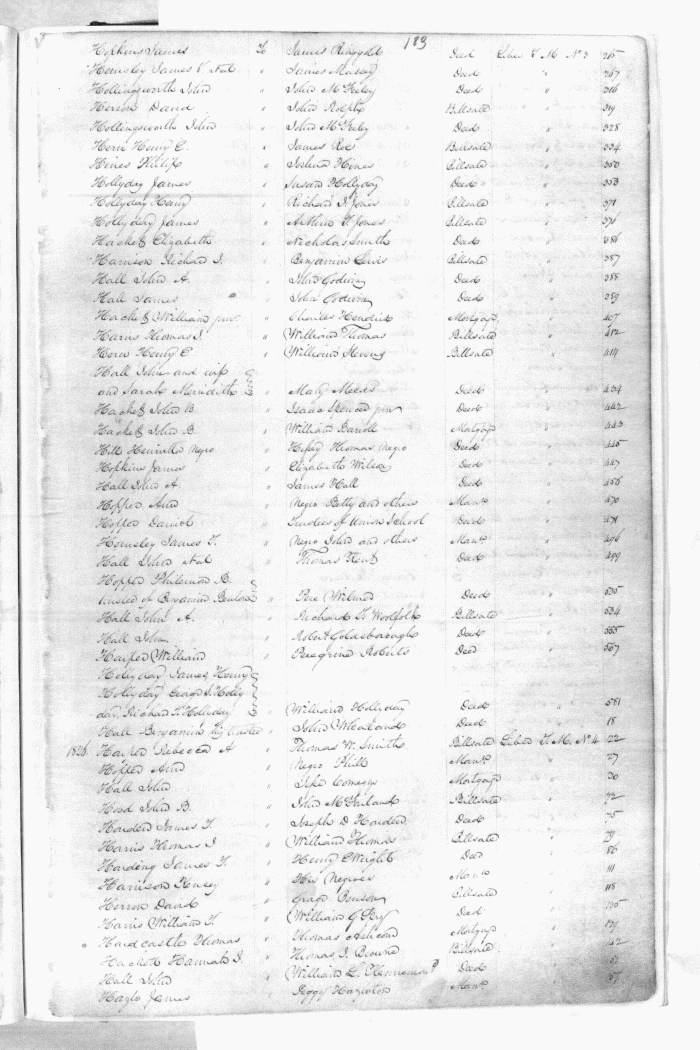 183
Hopkins James To James Ringgold Deed Liber T. M. No 3 265
Hemsley James T. " James Massey Deed " 267
Hollingsworth John " John McFeley Deed " 316
Herron David " John Rolph Billsale " 319
Hollingsworth John " John McFeley Deed " 328
Henry C. " James Roe Billsale " 334
Hines Phillip " Joshua Hines Billsale " 350
Hollyday James " Susan Hollyday Deed " 353
Hollyday " Richard I. Jones Billsale " 371
Hollyday James " Arthur T. Jones Billsale " 376
Hackett Elizabeth " Nicholas Smith Deed " 386
Harrison Richard I. " Benjamin Lewis Billsale " 387
Hall John A. " John Godwin Deed " 388
Hall James " John Godwin Deed " 389
Hackett William junr " Charles Hendrix Mortgage " 407
Harris Thomas I. " William Thomas Billsale " 412
Henry C " William Billsale " 414
Hall John and wife
and Sarah Meridith " Mary Meeds Deed " 434
Hackett John B " Isaac Spencer junr Deed " 442
Hackett John B. " William Barroll Mortgage " 443
Hill Henrietta Negro " Thomas Negro Deed " 445
Hopkins James " Elizabeth Wilson Deed " 447
Hall John A " James Hall Deed " 456
Hopper Ann " Negro Betty and others Mann " 470
Hopper Daniel " Trustees of Union School Deed " 471
Hemsley James T. " Negro John and others Mann " 496
Hall John " Thomas Kent Deed " 499
Hopper Philemon B.
trustee of Benjamin " Pere Wilmer Deed " 505
Hall John A. " Richard T. Woolfolk Billsale " 534
Hall John " Robert Goldsborough Deed " 555
Harper William " Peregrine Roberts Deed " 567
Hollyday James Henry
Hollyday George S. Holly
day, Richard T. Hollyday " William Hollyday Deed " 581
Hall Benjamin his trustee " John Deed " 18
1826 Harper Rebecca A " Thomas W. Smith Billsale Liber T. M. No 4 22
Hopper Ann " Negro Phill Mann " 27
Hall John " Comegys Mortgage " 30
Hood John B. " John McFarland Billsale " 72
Harden James T. " Joseph D Harden Deed " 75
Harris Thomas I " William Thomas Billsale " 79
Harding James T. " Henry C Wright Deed " 86
Harrison " Her Negroes Mann " 111
Herron David " Benson Billsale " 118
Harris William T. " William G Deed " 135
Hardcastle Thomas " Thomas Mortgage "
Hackett Hannah I. " Thomas I. Browne Billsale " 142
Hall John " William L. Deed "
James " Peggy Mann "